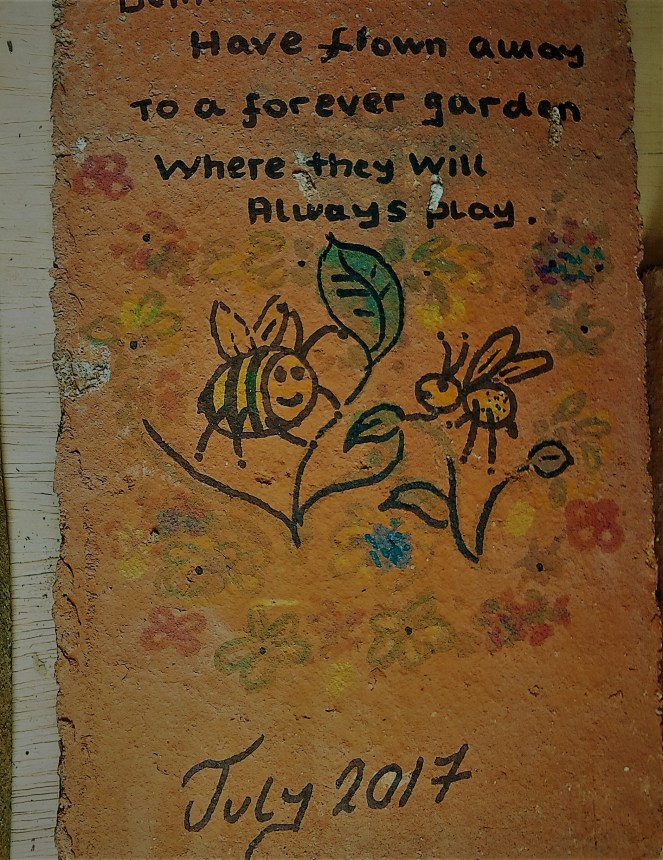 Have flown away
To a forever garden
Where they will
Always play.
July 2017